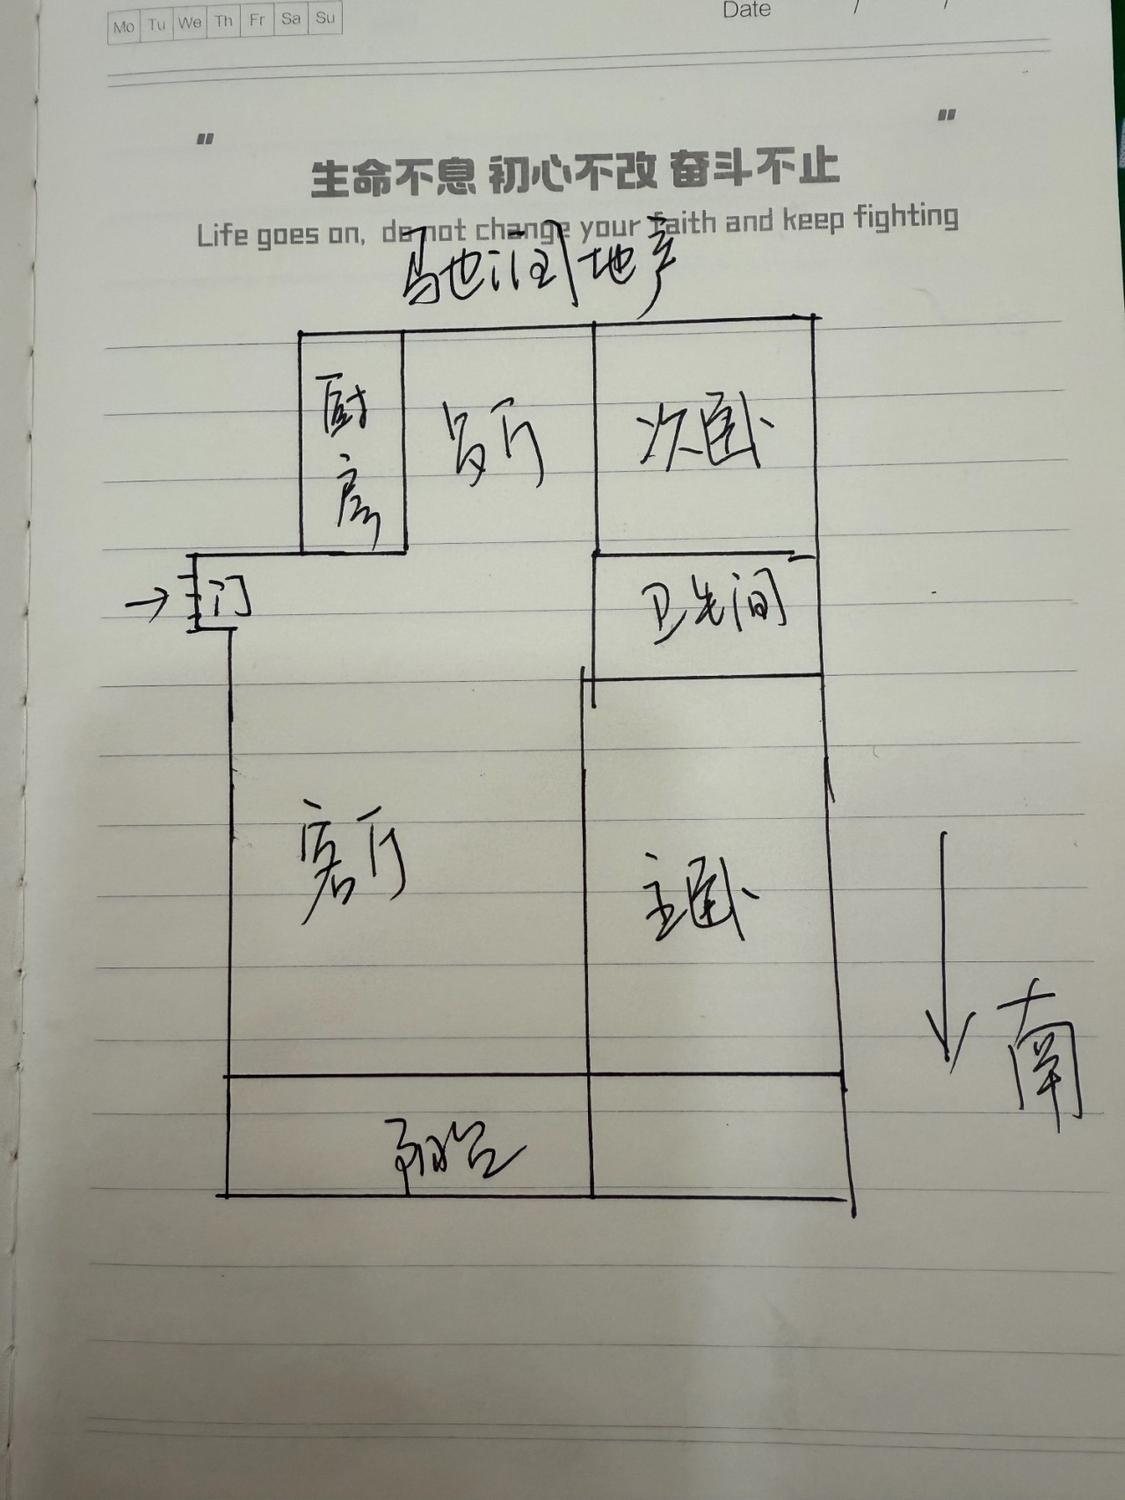 Mo Tu We Th Fr Sa Su
Date / /
"
"
生命不息 初心不改 奋斗不止
Life goes on, do not change your faith and keep fighting
驰润地产
厨房
餐厅
次卧
门
卫生间
客厅
主卧
南
阳台